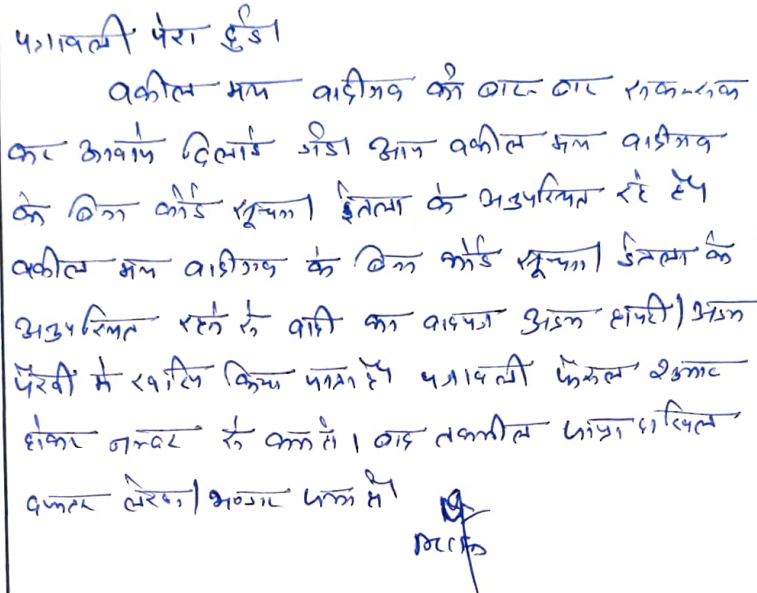 पत्रावली पेश हुई।
वकील मय वादीगण को बार बार रुक-रुक
कर आवाज दिलाई गई। आज वकील मय वादीगण
के बिना कोई सूचना/ इतला के अनुपस्थित रहे है।
वकील मय वादीगण के बिना कोई सूचना/ इतला के
अनुपस्थित रहने से वादी का वादपत्र अदम हाजरी/अदम
पैरवी में खारिज किया जाता है। पत्रावली फैसल शुमार
होकर नम्बर से कम हो। बाद तकमील जांप्ता दाखिल
दफ्तर लेखा/भण्डार जमा हो।